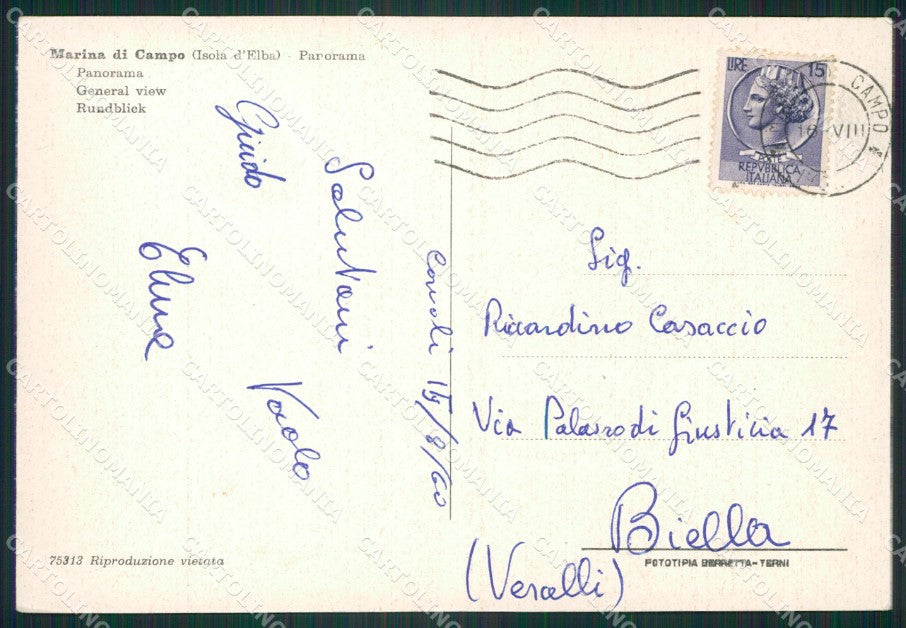 Marina di Campo (Isola d'Elba) - Panorama
Panorama
General view
Rundblick
LIRE 15
POSTE
REPVBBLICA
ITALIANA
CAMPO
16 VIII
Cavoli 15/8/60
Saluti
Guido
Paolo
Sig.
Riccardino Casaccio
Via Palazzo di Giustizia 17
Biella
(Vercelli)
75313 Riproduzione vietata
FOTOTIPIA BERRETTA-TERNI
CARTOLINOMANIA